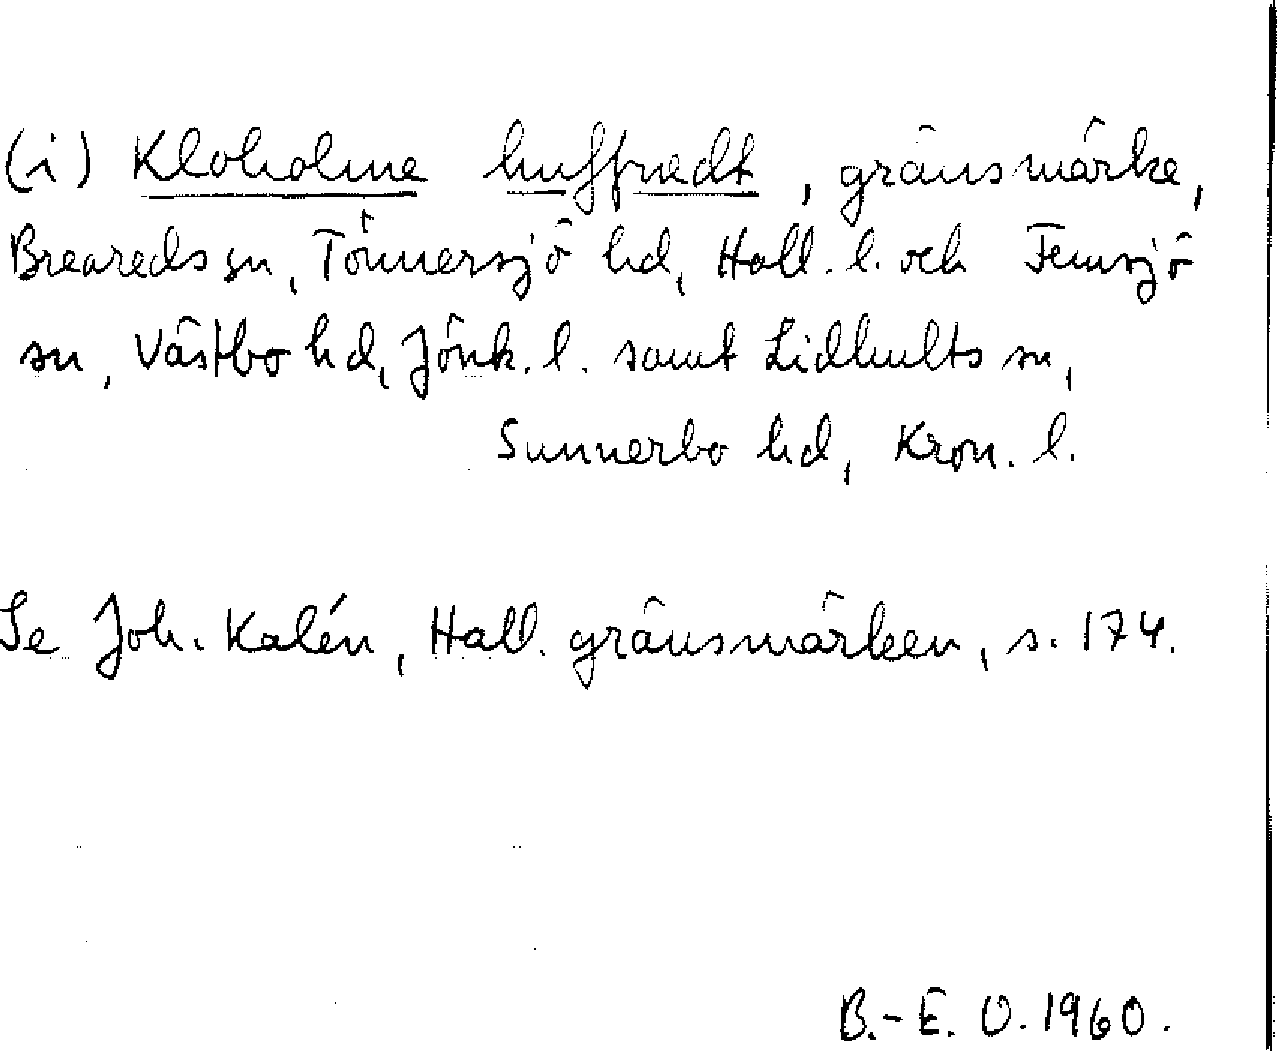 (i) Kloholme huffvedt, gränsmärke,
Breareds sn, Tönnersjö hd, Hall. l. och Femsjö
sn, Västbo hd, Jönk. l. samt Lidhults sn,
Sunnerbo hd, Kron. l.
Se Joh. Kalén, Hall. gränsmärken, s. 174.
B.-E. O. 1960.